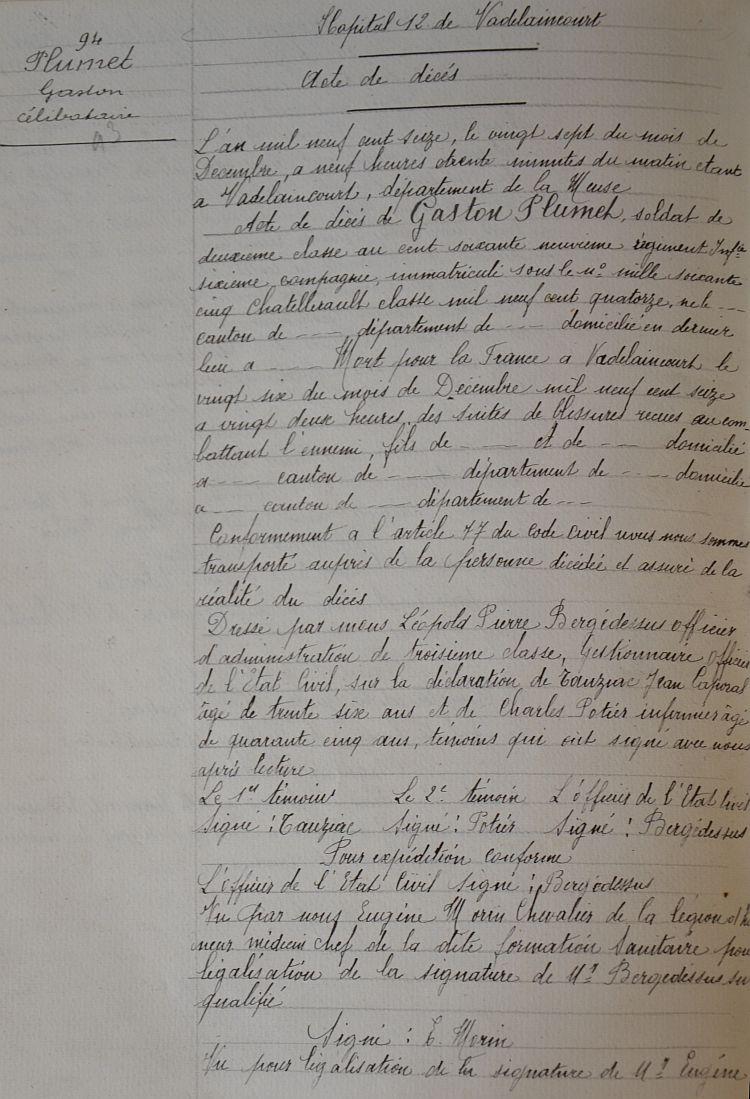 Hopital 12 de Vadelaincourt
94
Plumet
Gaston
célibataire
Acte de décés
L'an mil neuf cent seize, le vingt sept du mois de
Decembre, a neuf heures trente minutes du matin etant
a Vadelaincourt, département de la Meuse
Acte de décés de Gaston Plumet, soldat de
deuxieme classe au cent soixante neuvieme régiment Inf^ie
sixieme compagnie, immatriculé sous le n° mille soixante
cinq Chatellerault classe mil neuf cent quatorze, ne le ---
canton de --- département de --- domicilié en dernier
lieu a --- Mort pour la France a Vadelaincourt le
vingt six du mois de Décembre mil neuf cent seize
a vingt deux heures, des suites de blessures recues au com-
battant l'ennemi, fils de --- et de --- domicilié
a --- canton de --- département de --- domicilie
a --- canton de --- département de ---
Conformement a l'article 77 du Code Civil nous nous sommes
transporté auprès de la personne décédée et assuré de la
réalité du décés
Dressé par nous Léopold Pierre Bergédessus officier
d'administration de troisieme classe, Gestionnaire officier
de l'Etat Civil, sur la déclaration de Tauziac Jean Caporal
âgé de trente six ans et de Charles Potier infirmier âgé
de quarante cinq ans, témoins qui ont signé avec nous
après lecture
Le 1er témoin Le 2e témoin L'officier de l'Etat Civil
Signé : Tauziac Signé : Potier Signé : Bergédessus
Pour expédition conforme
L'officier de l'Etat Civil signé : Bergédessus
Vu par nous Eugéne Morin Chevalier de la légion d'hon
neur médecin chef de la dite formation Sanitaire pour
légalisation de la signature de Mr Bergedessus sus
qualifié
Signé : E. Morin
Vu pour légalisation de la signature de Mr Eugéne